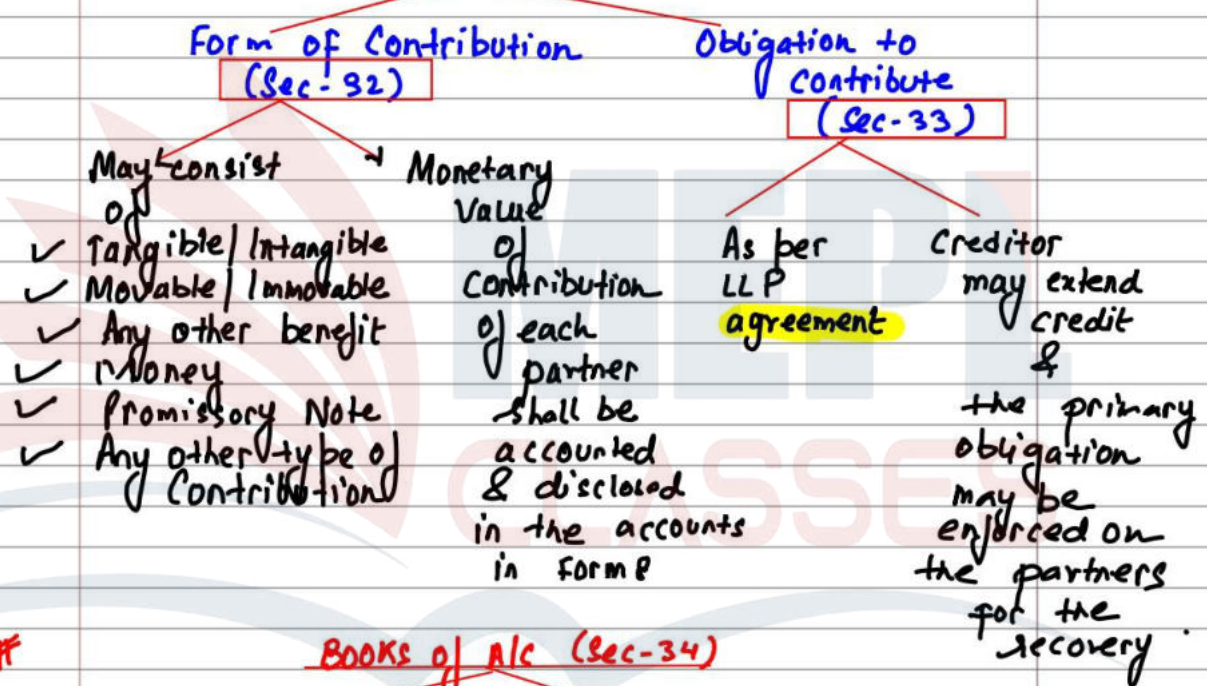 Form of Contribution
(Sec-32)
May consist
of
✓ Tangible/Intangible
✓ Movable/Immovable
✓ Any other benefit
✓ Money
✓ Promissory Note
✓ Any other type of
Contribution
Monetary
Value
of
Contribution
of each
partner
shall be
accounted
& disclosed
in the accounts
in Form 8
Obligation to
contribute
(Sec-33)
As per
LLP
agreement
Creditor
may extend
credit
&
the primary
obligation
may be
enforced on
the partners
for the
recovery.
MEPL
CLASSES
#
BOOKS of A/C (Sec-34)